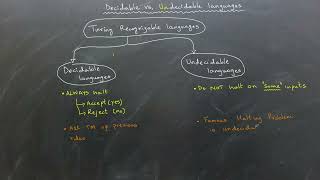 Decidable vs. Undecidable languages
Turing Recognizable languages
Decidable
languages
Undecidable
languages
• ALWAYS halt
Accept (yes)
Reject (no)
• Do NOT halt on "Some" inputs
• All TM of previous
video
• Famous Halting Problem
is Undecidab